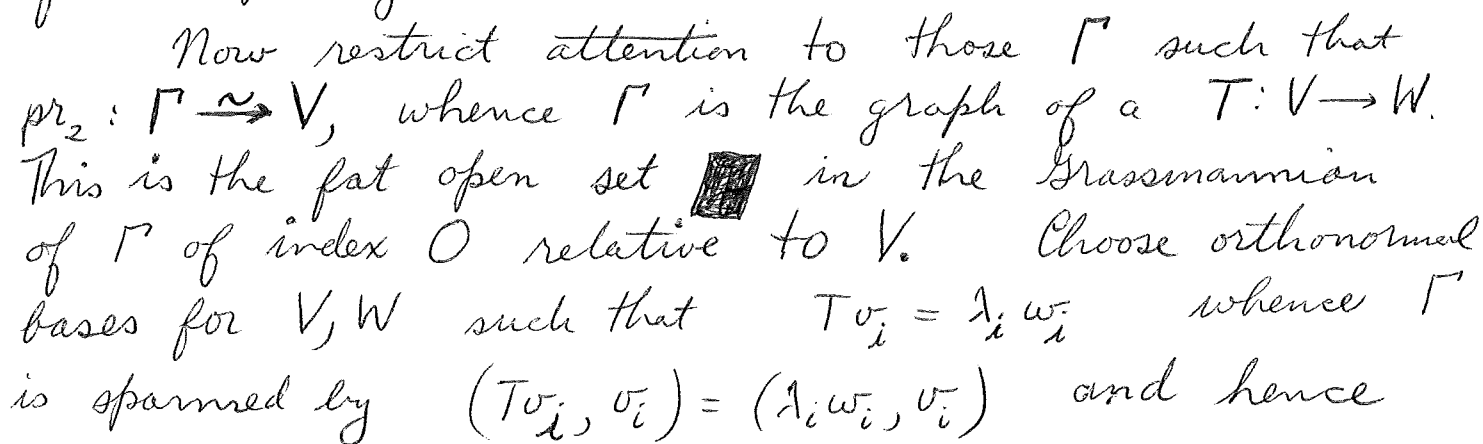 Now restrict attention to those Γ such that
pr₂ : Γ ⥲ V, whence Γ is the graph of a T: V → W.
This is the fat open set in the Grassmannian
of Γ of index O relative to V. Choose orthonormal
bases for V, W such that Tvᵢ = λᵢ wᵢ whence Γ
is spanned by (Tvᵢ, vᵢ) = (λᵢwᵢ, vᵢ) and hence